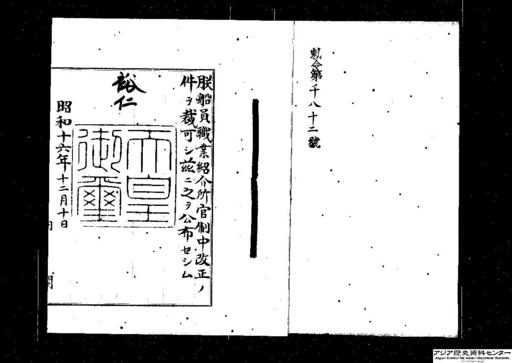 勅令第千八十二號
朕船員職業紹介所官制中改正ノ
件ヲ裁可シ茲ニ之ヲ公布セシム
裕仁
天皇
御璽
昭和十六年十二月十日
アジア歴史資料センター
Japan Center for Asian Historical Records